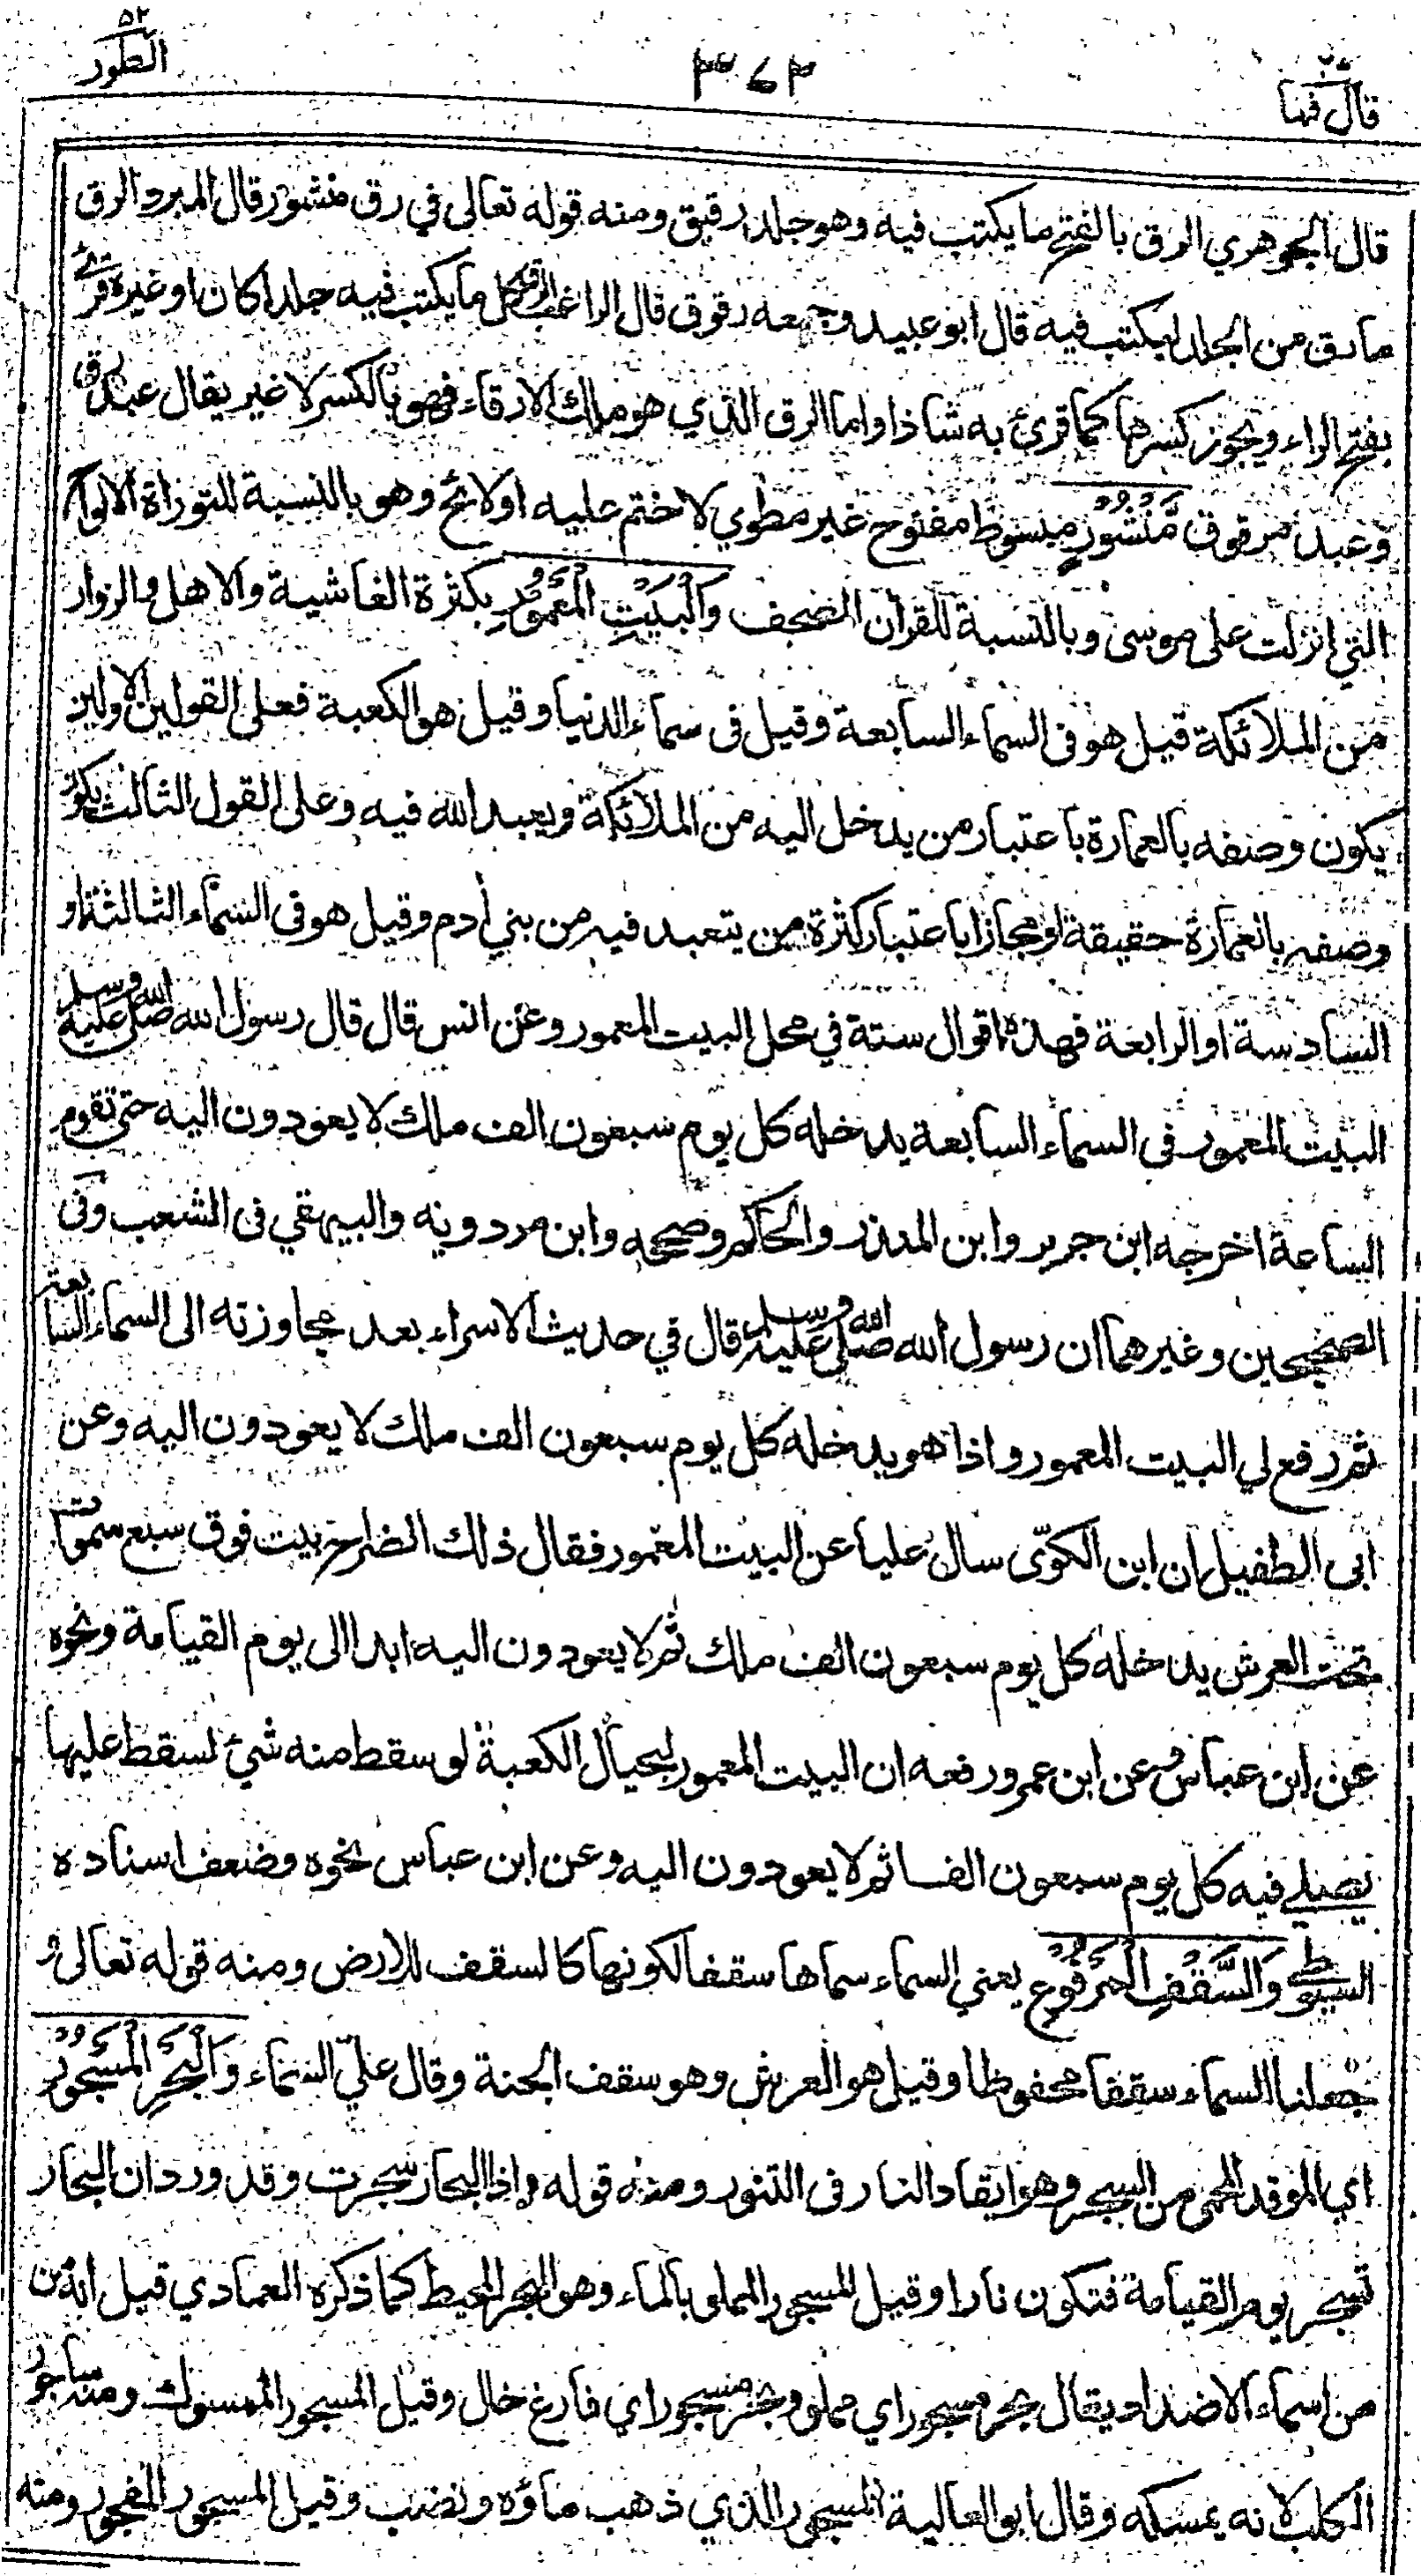 ٥٢
الطور
٣٧٣
قال فما
قال الجوهري الرق بالفتح ما يكتب فيه وهو جلد رقيق ومنه قوله تعالى في رق منشور قال المبرد الرق
ما رق من الجلد ليكتب فيه قال ابو عبيد وجمعه رقوق قال الراغب الرق كل ما يكتب فيه جلدا كان او غيره قرئ
بفتح الراء ويجوز كسرها كما قرئ به شاذا واما الرق الذي هو ملك الارقاء فهو بالكسر لا غير يقال عبد رق
وعبد مرقوق مَّنْشُوْرٍ مبسوط مفتوح غير مطوي لا ختم عليه اولائح وهو بالنسبة للتوراة الالواح
التي انزلت على موسى وبالنسبة للقرآن المصحف وَالْبَيْتِ الْمَعْمُوْرِ بكثرة الغاشية والاهل والزوار
من الملائكة قيل هو فى السماء السابعة وقيل فى سماء الدنيا وقيل هو الكعبة فعلى القولين الاولين
يكون وصفه بالعمارة باعتبار من يدخل اليه من الملائكة ويعبد الله فيه وعلى القول الثالث يكون
وصفه بالعمارة حقيقة او مجازا باعتبار كثرة من يتعبد فيه من بني أدم وقيل هو في السماء الثالثة او
السادسة او الرابعة فهذه اقوال ستة في محل البيت المعمور وعن انس قال قال رسول الله صلى الله عليه وسلم
البيت المعمور فى السماء السابعة يدخله كل يوم سبعون الف ملك لا يعودون اليه حتى تقوم
الساعة اخرجه ابن جرير وابن المنذر والحاكم وصححه وابن مردويه والبيهقي فى الشعب وفى
الصحيحين وغيرهما ان رسول الله صلى الله عليه وسلم قال في حديث الاسراء بعد مجاوزته الى السماء السابعة
ثم رفع لي البيت المعمور واذا هو يدخله كل يوم سبعون الف ملك لا يعودون اليه وعن
ابى الطفيل ان ابن الكوّى سال عليا عن البيت المعمور فقال ذلك الضراح بيت فوق سبع سموات
تحت العرش يدخله كل يوم سبعون الف ملك ثم لا يعودون اليه ابدا الى يوم القيامة ونحوه
عن ابن عباس وعن ابن عمرو رفعه ان البيت المعمور لبحيال الكعبة لو سقط منه شئ لسقط عليها
يصلي فيه كل يوم سبعون الفا ثم لا يعودون اليه وعن ابن عباس نحوه وضعف اسناده
السيوطي وَالسَّقْفِ الْمَرْفُوْعِ يعني السماء سماها سقفا لكونها كالسقف للارض ومنه قوله تعالى و
جعلنا السماء سقفا محفوظا وقيل هو العرش وهو سقف الجنة وقال عليّ السماء وَالْبَحْرِ الْمَسْجُوْرِ
اي الموقد المحمى من السجر وهو ايقاد النار فى التنور ومنه قوله واذا البحار سجرت وقد ورد ان البحار
تسجر يوم القيامة فتكون نارا وقيل المسجور المملو بالماء وهو البحر المحيط كما ذكره العمادي قيل انه من
من اسماء الاضداد يقال بحر مسجور اي مملو وبحر مسجور اي فارغ خال وقيل المسجور الممسوك ومنه ساجور
الكلب لانه يمسكه وقال ابو العالية المسجور الذي ذهب ماؤه ونضب وقيل المسجور المفجور ومنه